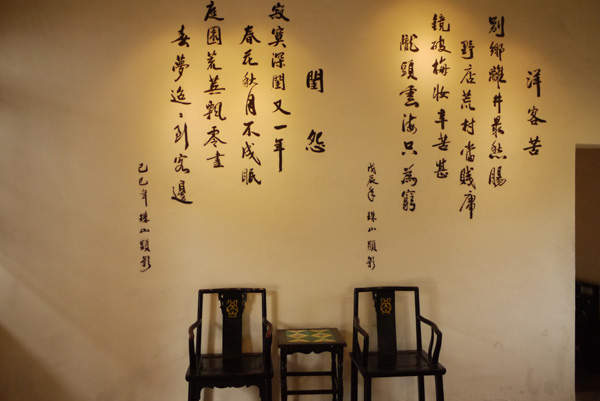 洋客苦
別鄉離井最愁腸
野店荒村當賤庸
鏡破梅妝辛苦甚
隴頭雲海只為窮
戊辰年 珠山顯影
閨怨
寂寞深閨又一年
春花秋月不成眠
庭園荒蕪飄零盡
春夢迢〻到客邊
己巳年 珠山顯影